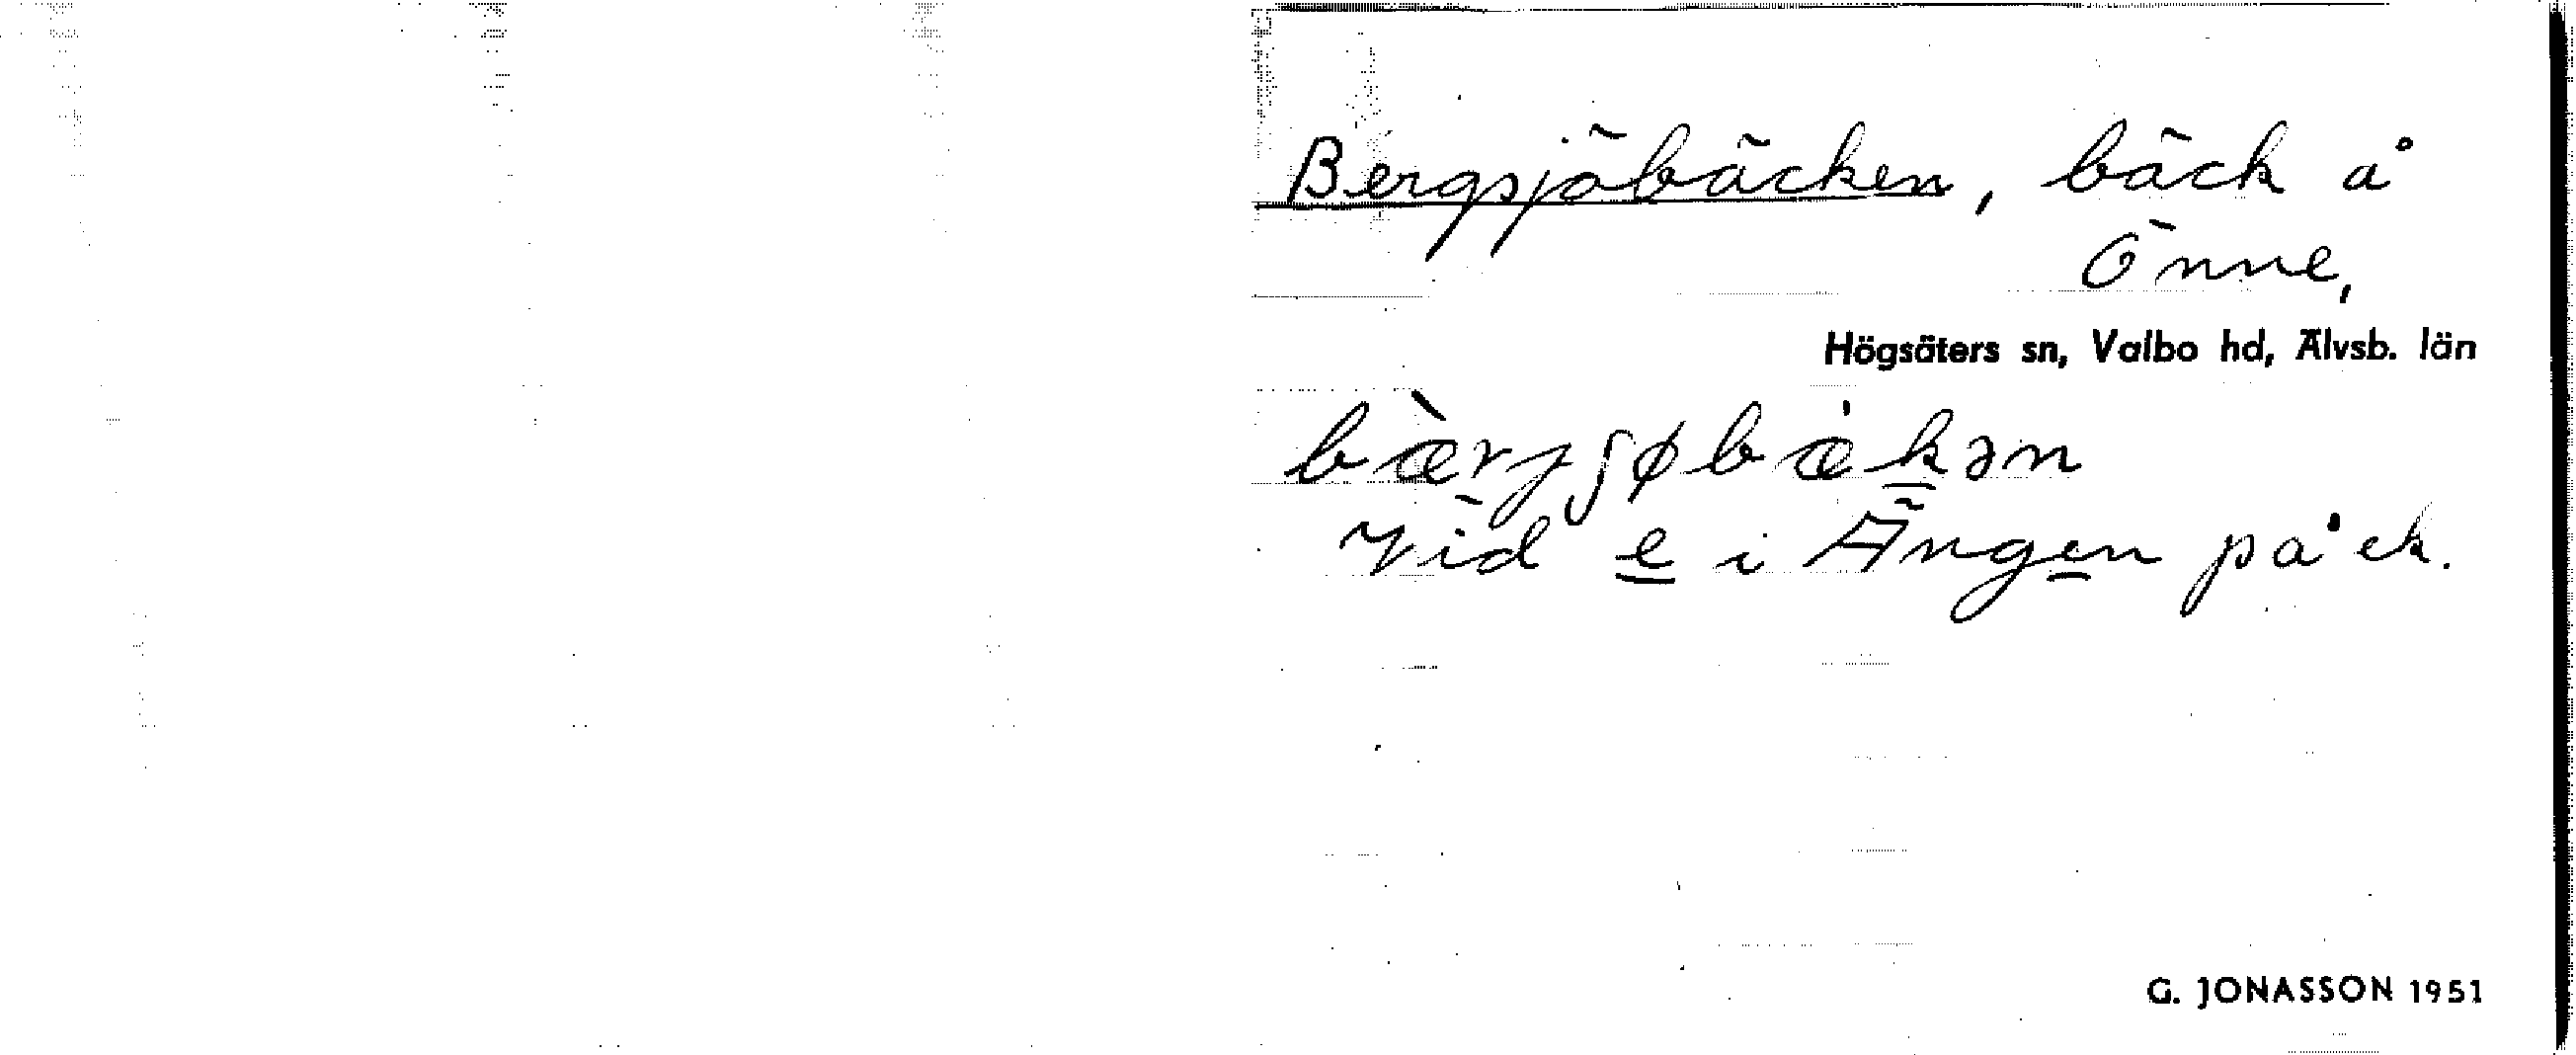 Bergsjöbäcken, bäck å
Önne,
Högsäters sn, Valbo hd, Älvsb. län
bæ̀rjʃøbæ̇k̲ən
Vid e̲ i Änge̲n på ek.
G. JONASSON 1951